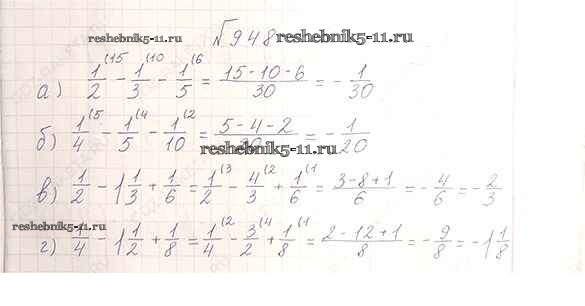 √948
reshebnik5-11.ru reshebnik5-11.ru
а) 1/2 (15 - 1/3 (10 - 1/5 (6 = 15-10-6/30 = - 1/30
б) 1/4 (5 - 1/5 (4 - 1/10 (2 = 5-4-2/20 = - 1/20
reshebnik5-11.ru
в) 1/2 - 1 1/3 + 1/6 = 1/2 (3 - 4/3 (2 + 1/6 (1 = 3-8+1/6 = - 4/6 = - 2/3
reshebnik5-11.ru
г) 1/4 - 1 1/2 + 1/8 = 1/4 (2 - 3/2 (4 + 1/8 (1 = 2-12+1/8 = - 9/8 = - 1 1/8